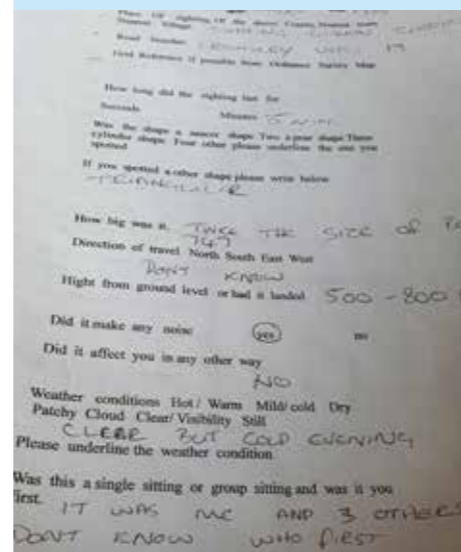 Place Of sighting Of the above County Nearest town
Nearest Village
Road Number
Grid Reference if possible from Ordnance Survey Map
How long did the sighting last for
Seconds Minutes 5 MIN
Was the shape a saucer shape Two a pear shape Three
cylinder shape Four other please underline the one you
spotted
If you spotted a other shape please write below
TRIANGULAR
How big was it. TWICE THE SIZE OF
747
Direction of travel North South East West
DONT KNOW
Hight from ground level or had it landed 500 - 800
Did it make any noise yes no
Did it affect you in any other way
NO
Weather conditions Hot/ Warm Mild/cold Dry
Patchy Cloud Clear/Visibility Still
CLEAR BUT COLD EVENING
Please underline the weather condition
Was this a single sitting or group sitting and was it you
first. IT WAS ME AND 3 OTHERS
DONT KNOW WHO FIRST